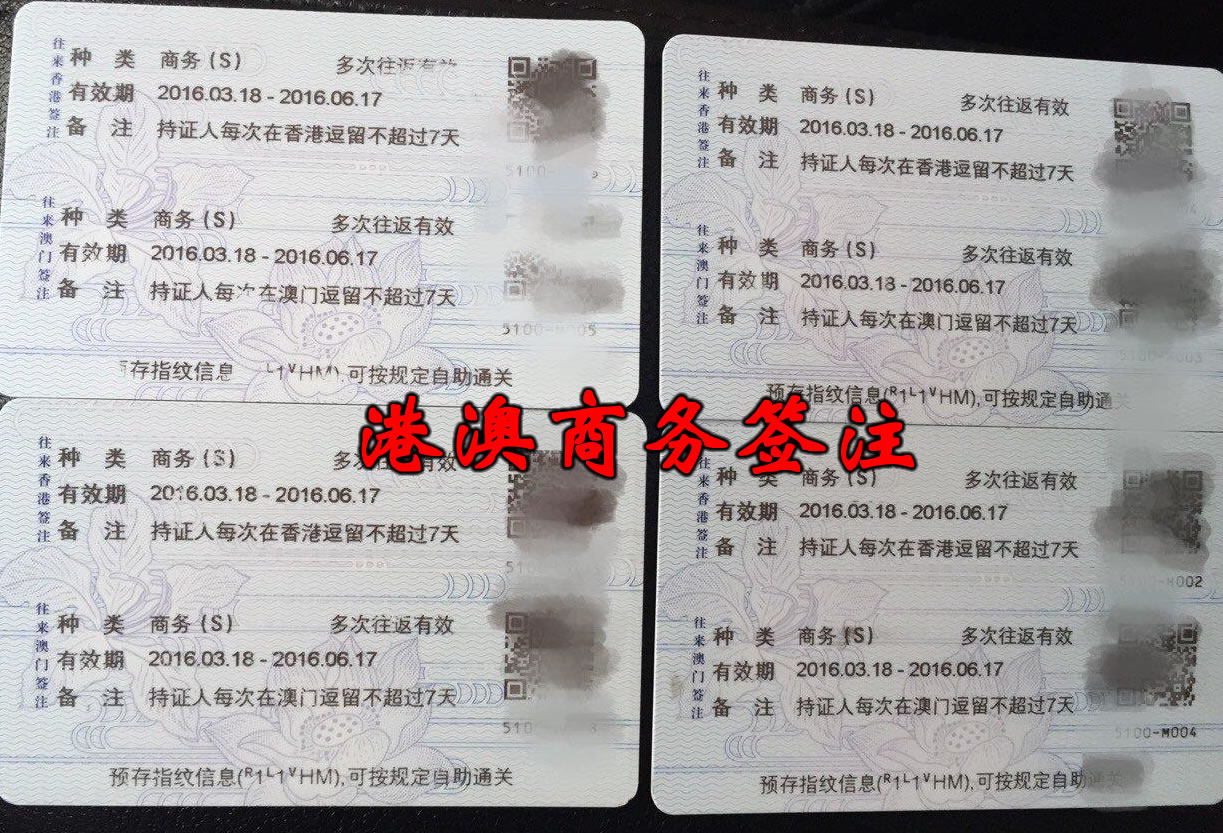 往来香港签注
种 类 商务(S) 多次往返有效
有效期 2016.03.18 - 2016.06.17
备 注 持证人每次在香港逗留不超过7天
5100-
往来澳门签注
种 类 商务(S) 多次往返有效
有效期 2016.03.18 - 2016.06.17
备 注 持证人每次在澳门逗留不超过7天
5100- 005
存指纹信息 L1VHM),可按规定自助通关
往来香港签注
种 类 商务(S) 多次往返有效
有效期 2016.03.18 - 2016.06.17
备 注 持证人每次在香港逗留不超过7天
往来澳门签注
种 类 商务(S) 多次往返有效
有效期 2016.03.18 - 2016.06.17
备 注 持证人每次在澳门逗留不超过7天
5100- 003
预存指纹信息(R1L1VHM),可按规定自助通关
港澳商务签注
往来香港签注
种 类 商务(S) 多次 有效
有效期 2016.03.18 - 2016.06.17
备 注 持证人每次在香港逗留不超过7天
510
往来澳门签注
种 类 商务(S) 多次往返有效
有效期 2016.03.18 - 2016.06.17
备 注 持证人每次在澳门逗留不超过7天
510
预存指纹信息(R1L1VHM),可按规定自助通关
往来香港签注
种 类 商务(S) 多次往返有效
有效期 2016.03.18 - 2016.06.17
备 注 持证人每次在香港逗留不超过7天
5100-M002
往来澳门签注
种 类 商务(S) 多次往返有效
有效期 2016.03.18 - 2016.06.17
备 注 持证人每次在澳门逗留不超过7天
5100-M004
预存指纹信息(R1L1VHM),可按规定自助通